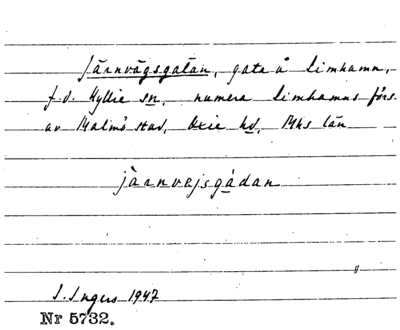 Järnvägsgatan, gata å Limhamn,
f.d. Hyllie sn, numera Limhamns förs.
av Malmö stad, Oxie hd, Mhs län
järnvejsgådan
I. Ingers 1947
Nr 5732.